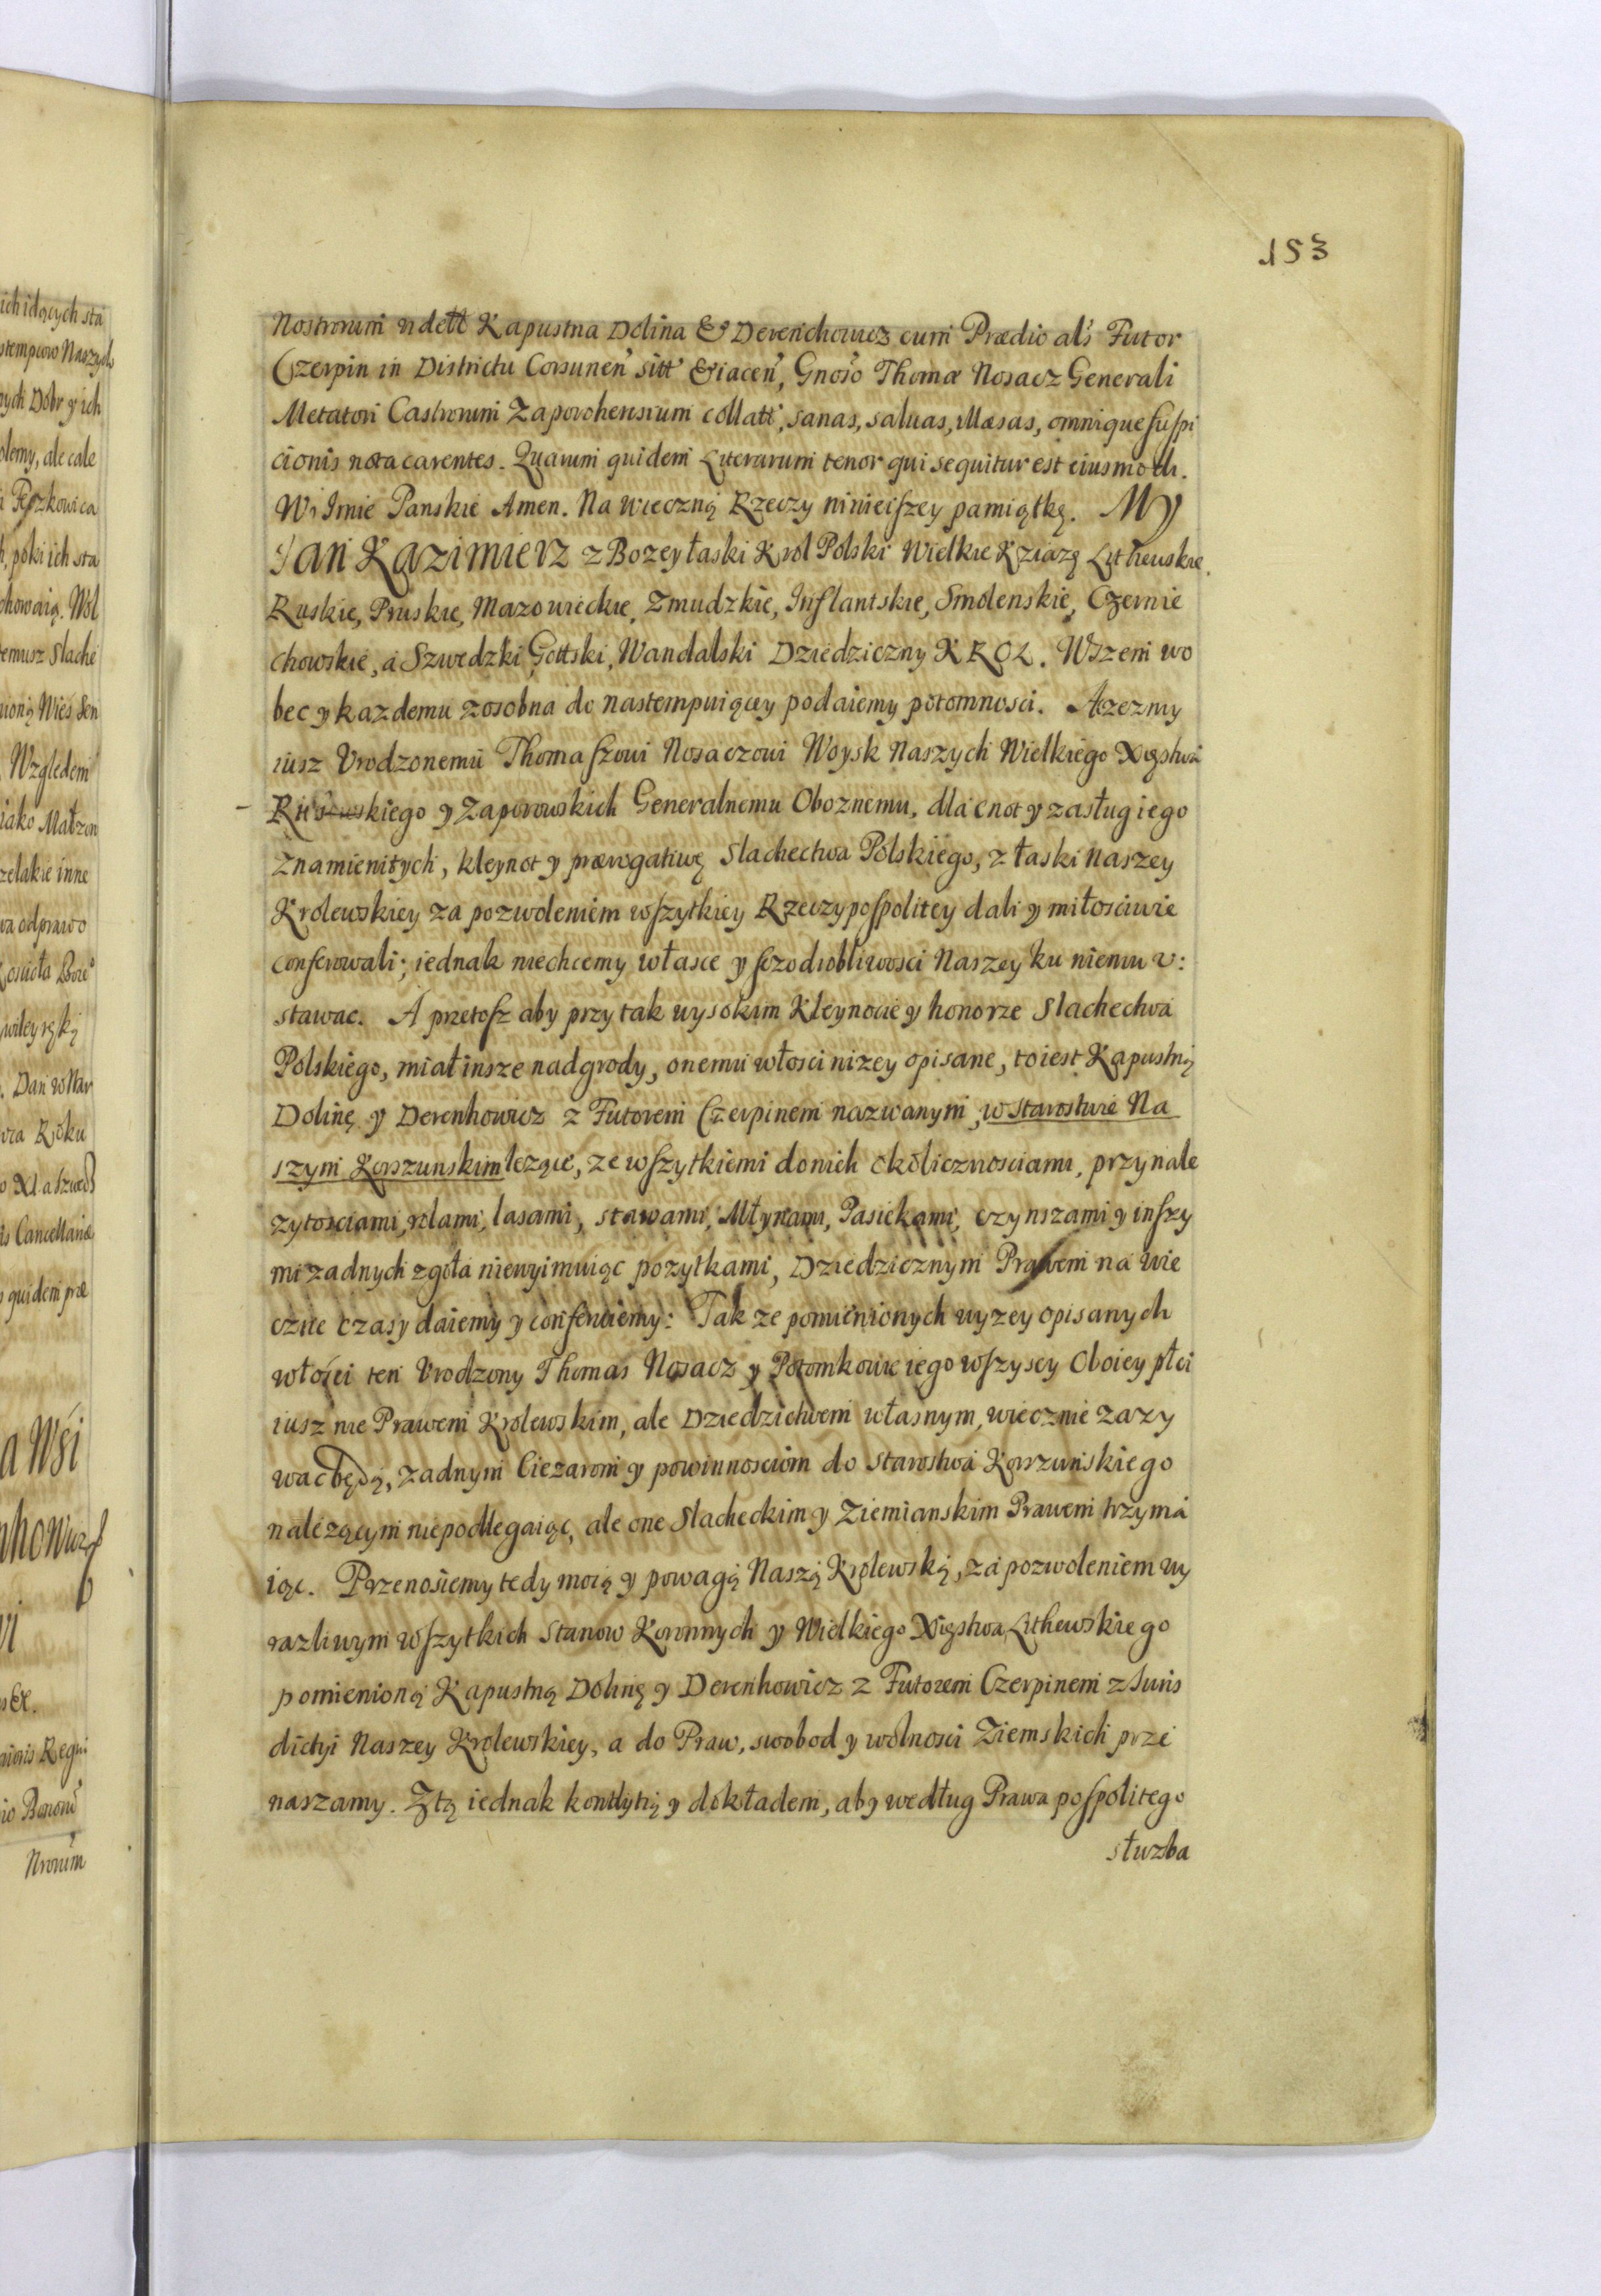 153
Nostrorum ndctt Kapustna Dolina & Derenchowicz cum Prædio als Futor
Czerpin in Districtu Corsunen sitt & iacen, Gnoso Thomæ Nosacz Generali
Metatori Castrorum Zaporohensium collatt, sanas, saluas, illæsas, omnique suspi
cionis nota carentes. Quarum quidem Literarum tenor qui sequitur est eiusmodi.
W Imie Panskie Amen. Na wieczną Rzeczy ninieiszey pamiątkę. My
Jan Kazimierz z Bozey łaski Krol Polski Wielkie Xziązę Lithewskie
Ruskie, Pruskie, Mazowieckie, Zmudzkie, Inflantskie, Smolenskie, Czernie
chowskie, a Szwedzki, Gottski, Wandalski Dziedziczny KROL. Wszem wo
bec y kazdemu zosobna do nastempuiącey podaiemy potomnosci. Azezmy
iusz Vrodzonemu Thomaszowi Nosaczowi Woysk Naszych Wielkiego Xięstwa
Ruskiego y Zaporowskich Generalnemu Oboznemu, dla cnot y zasług iego
znamienitych, kleynot y prærogatiwę Slachectwa Polskiego, z łaski Naszey
Krolewskiey za pozwoleniem wszytkiey Rzeczypospolitey dali y miłosciwie
conferowali; iednak niechcemy własce y sczodrobliwosci Naszey ku niemu v:
stawac. A przetosz aby przy tak wysokim Kleynocie y honorze Slachectwa
Polskiego, miał insze nadgrody, onemu włosci nizey opisane, toiest Kapustną
Dolinę y Derenhowicz z Futorem Czerpinem nazwanym, w starostwie Na
szym Korszunskim lezące, ze wszytkiemi do nich okolicznosciami, przynale
zytosciami, rolami, lasami, stawami, Młynami, Pasiekami, czynszami y inszy
mi zadnych zgoła niewyimuiąc pozytkami, Dziedzicznym Prawem na wie
czne czasy daiemy y conferuiemy: Tak ze pomienionych wyzey opisanych
włości ten Vrodzony Thomas Nosacz y Potomkowie iego wszyscy Oboiey płci
iusz nie Prawem Krolewskim, ale Dziedzictwem własnym, wiecznie zazy
wac będą, zadnym Ciezarom y powinnosciom do starostwa Korszunskiego
nalezącym niepodlegaiąc, ale one Slacheckim y Ziemianskim Prawem trzyma
iąc. Przenosiemy tedy mocą y powagą Naszą Krolewską, za pozwoleniem wy
razliwym wszytkich stanow Koronnych y Wielkiego Xięstwa Lithewskiego
pomienioną Kapustną Dolinę y Derenhowicz z Futorem Czerpinem z Iuris
dictyi Naszey Krolewskiey, a do Praw, swobod y wolnosci Ziemskich prze
naszamy. Z tą iednak kondytią y dokładem, aby według Prawa pospolitego
służba